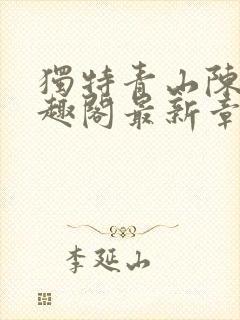 獨特青山陳
趣閣最新章
李延山